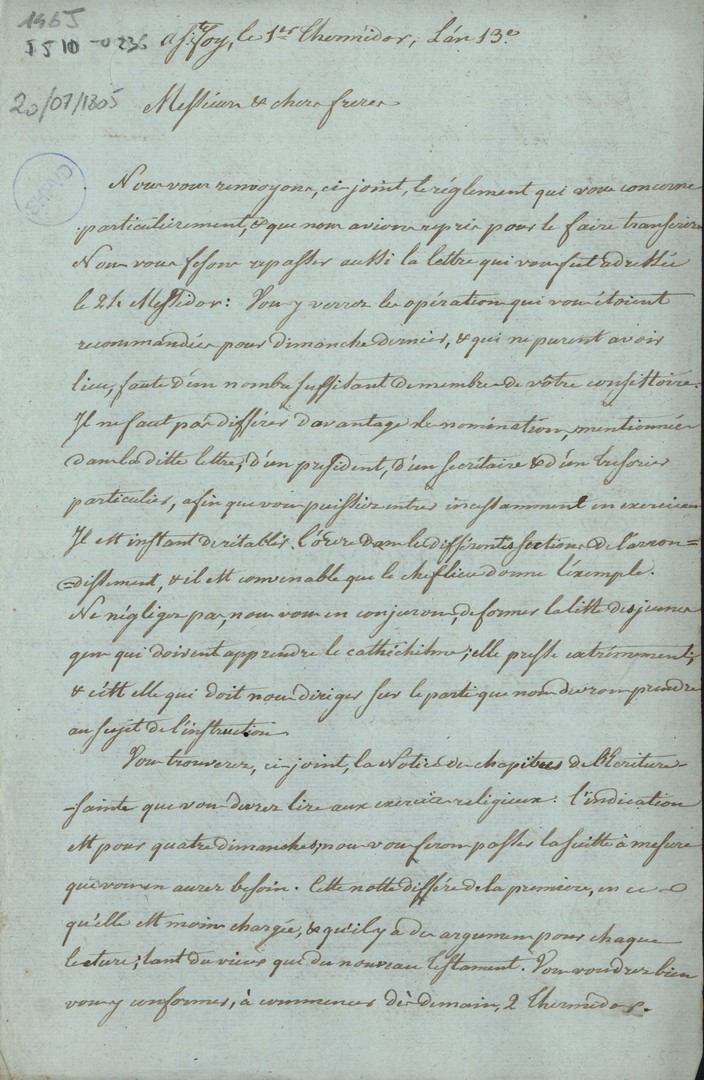 1965
I 5 10 - 0236
20/07/1805
à Ste. Foy, le 1er Thermidor, L'an 13e.
Messieurs & chers freres
Nous vous renvoyons, ci-joint, le réglement qui vous concerne
particulierement, & que nous avions repris pour le faire transcrire
Nous vous fesons repasser aussi la lettre qui vous fut adressée
le 24 Messidor: Vous y verrez les opérations qui vous étoient
recommandées pour dimanche dernier, & qui ne purent avoir
lieu, faute d'un nombre suffisant de membres de vôtre consistoire.
Il ne faut pas différer d'avantage la nomination, mentionnée
dans la ditte lettre, d'un président, d'un secrétaire & d'un tresorier
particulier, afin que vous puissiez entrer incessamment en exercice.
Il est instant de rétablir l'ordre dans les différentes sections de l'arron=
=dissement, & il est convenable que le cheflieu donne l'éxemple.
Ne négligez pas, nous vous en conjurons, de former la liste des jeunes
gens qui doivent apprendre le cathéchisme; elle presse extrêmement;
& c'est elle qui doit nous diriger sur le parti que nous devrons prendre
au sujet de l'instruction.
Vous trouverez, ci-joint, la Notice des chapitres de l'Ecriture-
-sainte que vous devrez lire aux exercices religieux: l'indication
est pour quatre dimanches; nous vous ferons passer la suitte à mesure
que vous en aurez besoin. Cette notte différe de la premiere, en ce
qu'elle est moins chargée, & qu'il y a des argumens pour chaque
lecture; tant du vieux que du nouveau Testament. Vous voudrez bien
vous y conformer, à commencer dès demain, 2 Thermidor.